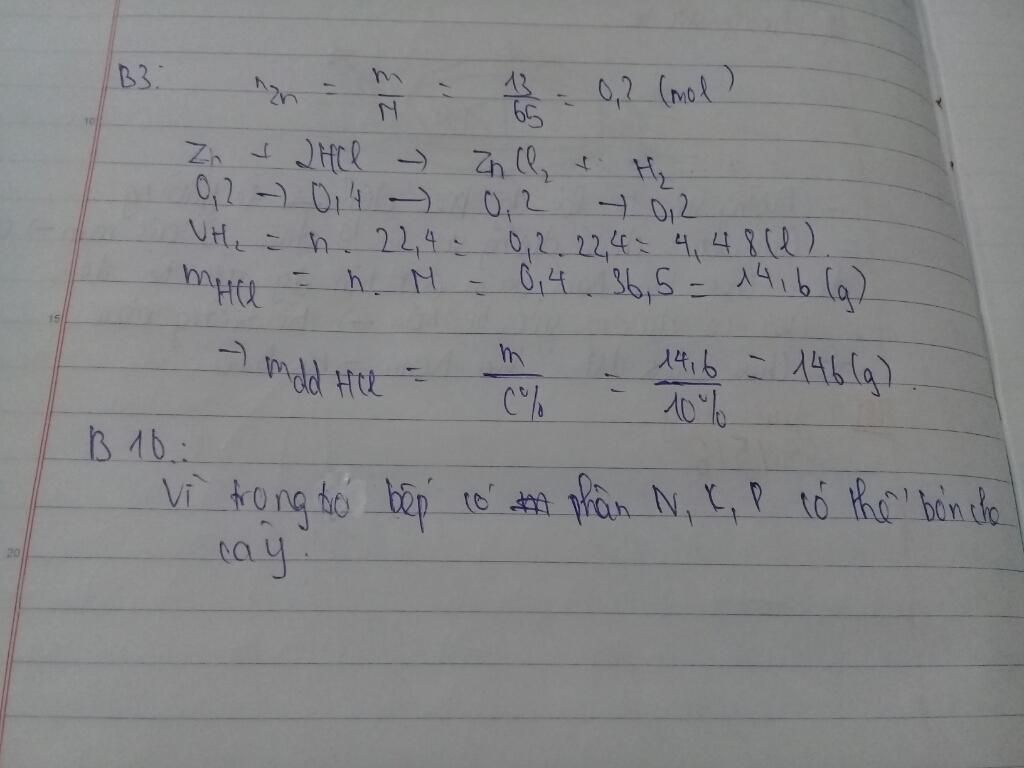 B3: nZn = m/M = 13/65 = 0,2 (mol)
Zn + 2HCl → ZnCl₂ + H₂
0,2 → 0,4 → 0,2 → 0,2
VH₂ = n . 22,4 = 0,2 . 22,4 = 4,48(l).
mHCl = n . M = 0,4 . 36,5 = 14,6(g)
→ mdd HCl = m/C% = 14,6/10% = 146(g).
B10:
Vì trong tro bếp có phân N, K, P có thể bón cho
cây.
10
15
20